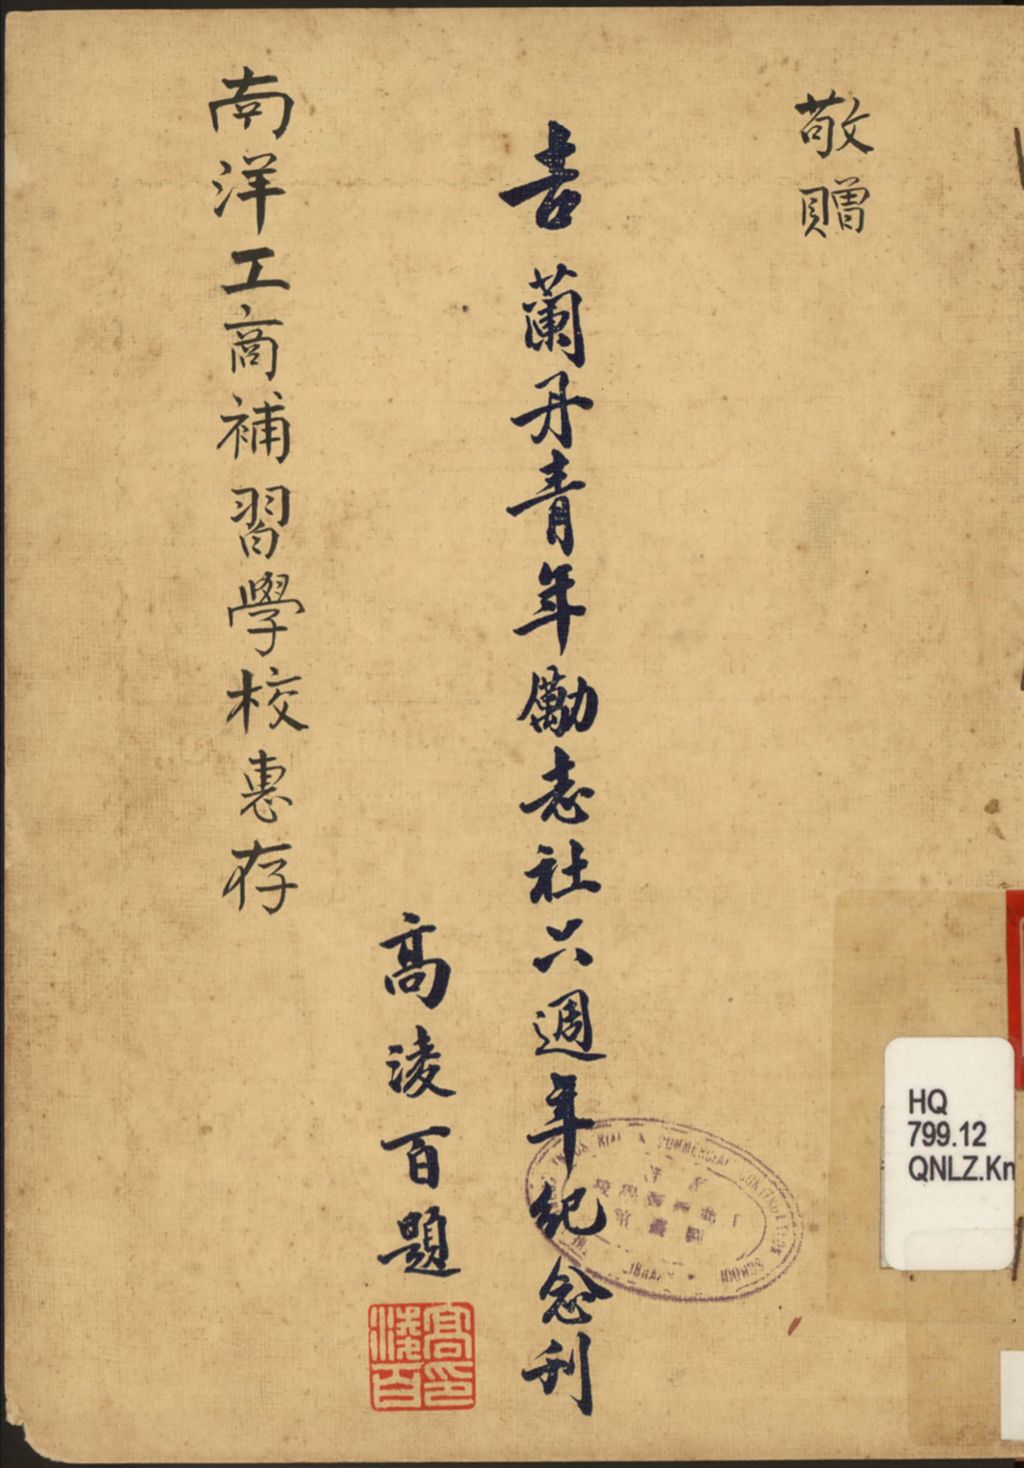 敬贈
吉蘭丹青年勵志社六週年紀念刊
高淩百題
南洋工商補習學校惠存
高淩百印
HQ
799.12
QNLZ.Kn